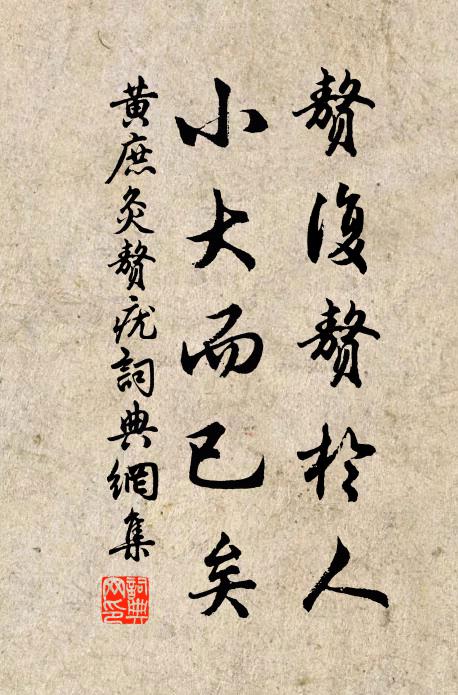 贅復贅於人
小大而已矣
黃庶灸贅疣詞典網集